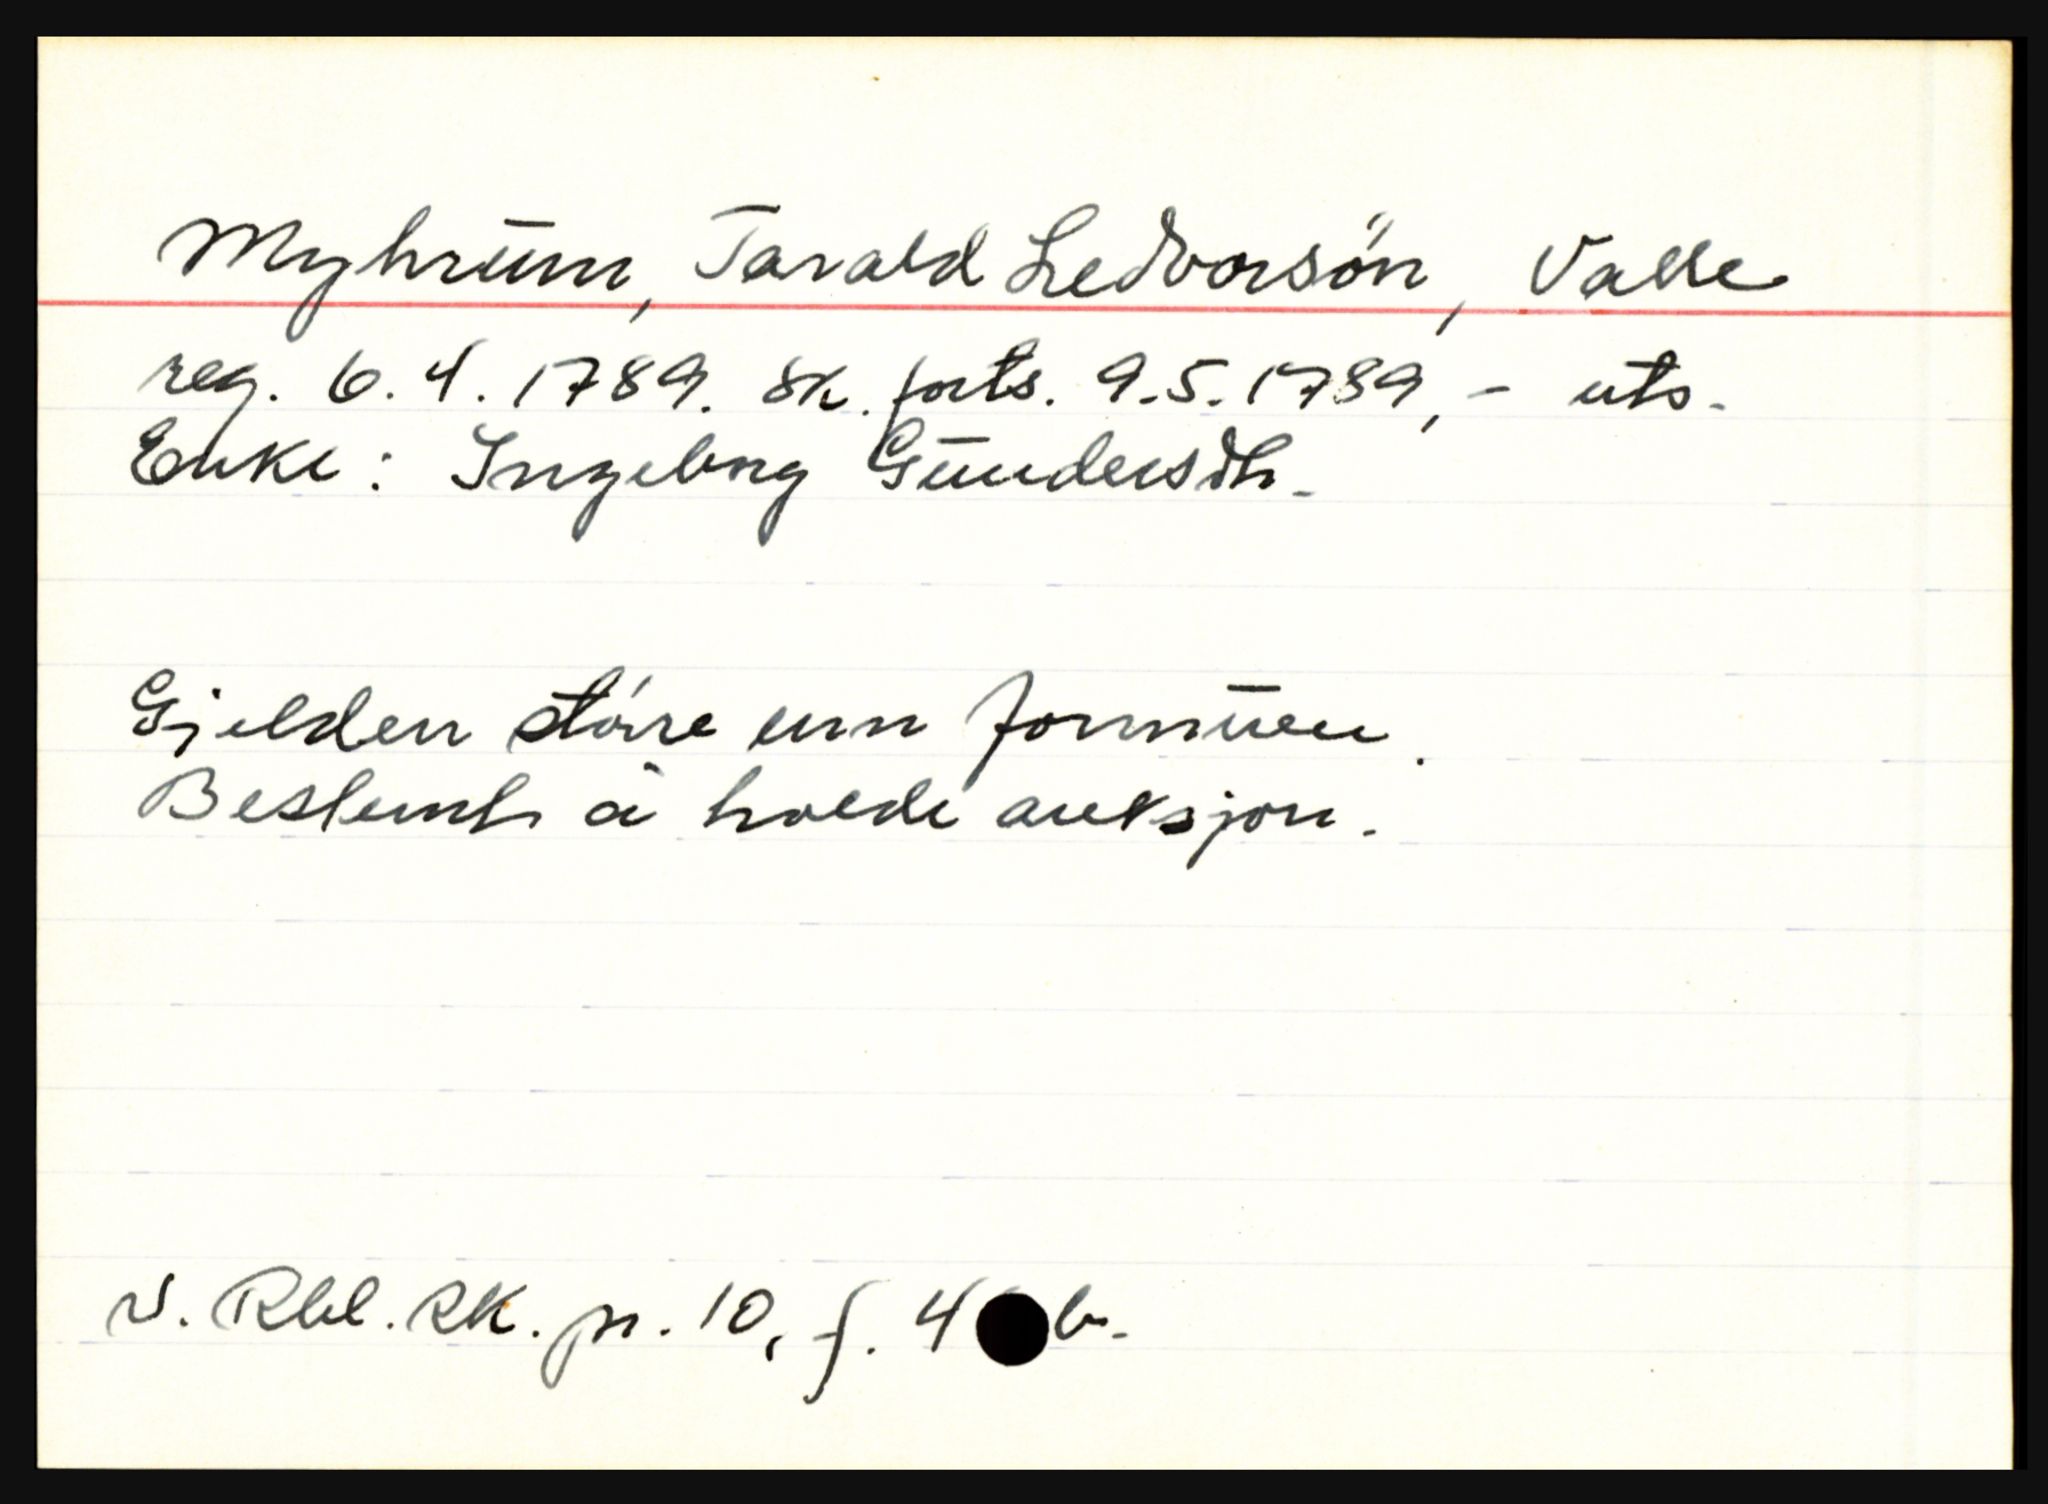 Myhrum, Tarald Ledvorsön, Valle
reg. 6.4.1789. sk. forts. 9.5.1789, - uts.
Enke: Ingeborg Gundersdtr.
Gjelden större enn formuen.
Bestemt å holde auksjon.
V. Rbl. RK. pr. 10, f. 4 b.